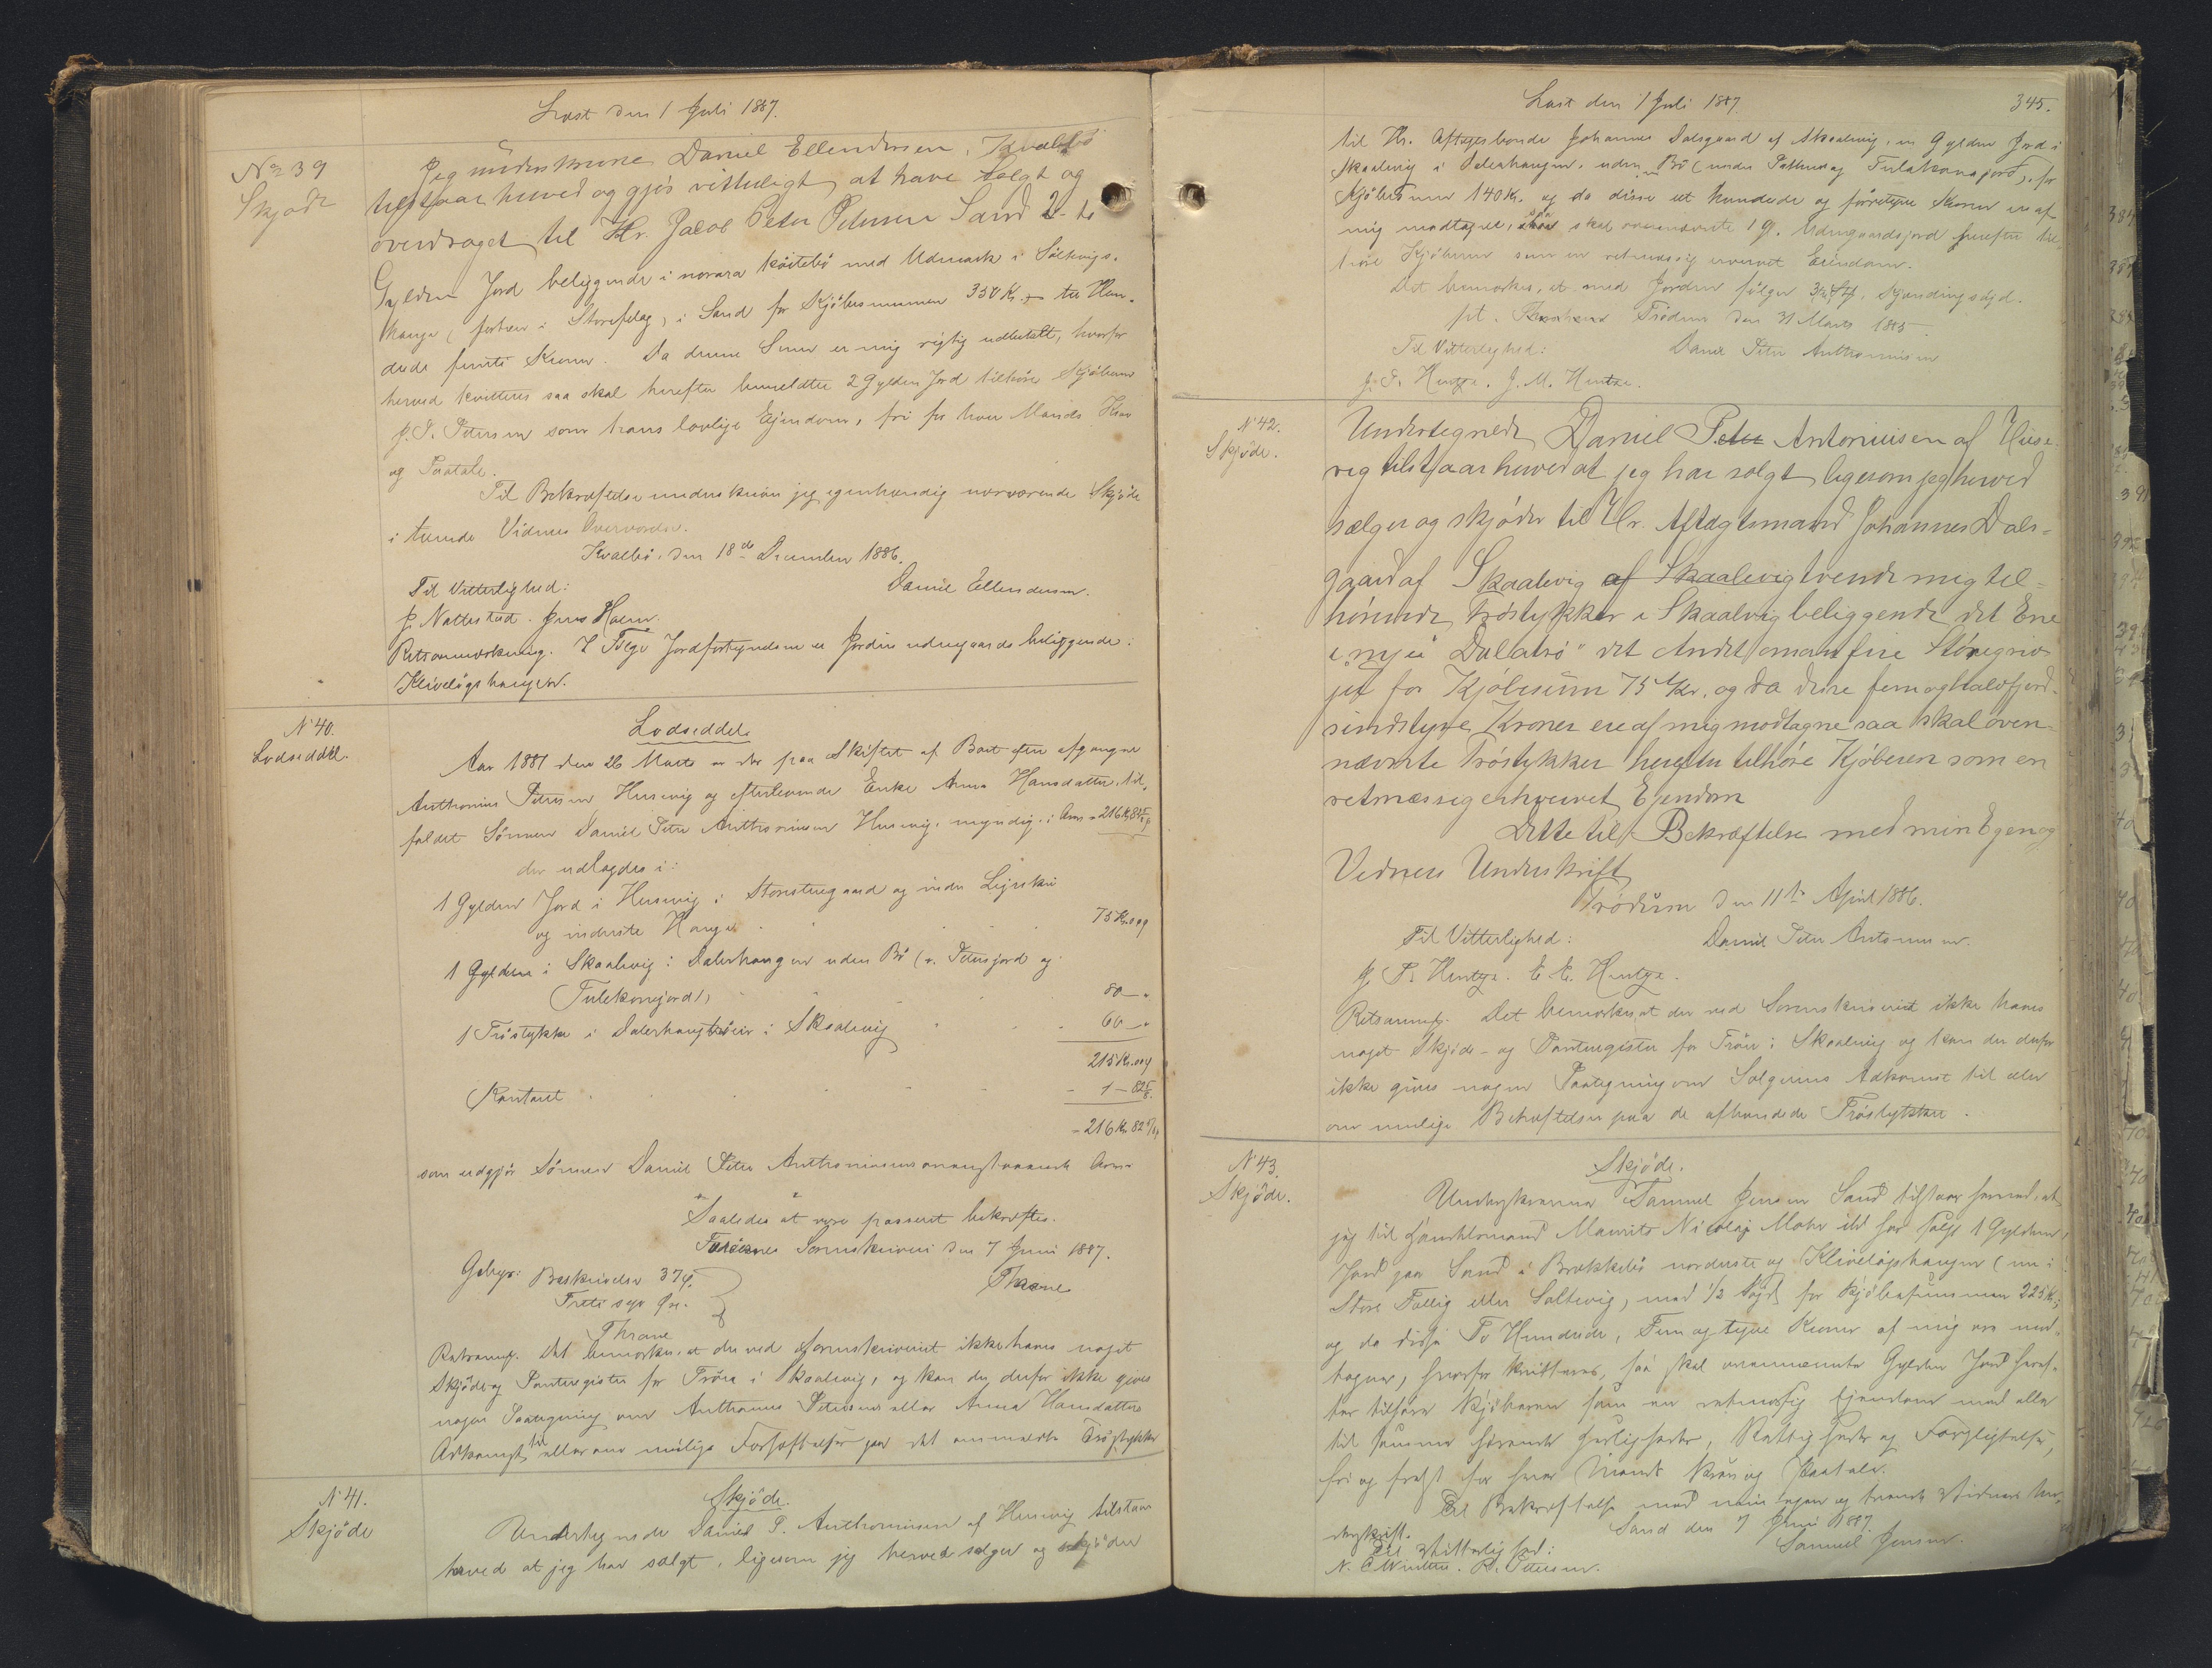 Læst den 1 Juli 1887.
No 39
Skjøde
Jeg underskrevne Daniel Ellendersen, Kvalbø
tilstaar herved og gjør vitterligt, at have solgt og
overdraget til Hr. Jacob Peter Petersen Sand 2- to
Gylden Jord beliggende i norara Køitebø med Udmark i
hauge (fortien i Storefelag) i Sand for Kjøbesummen 350 Kr. tre Hun-
drede femti Kroner. Da denne Sum er mig rigtig udbetalt, hvorfor
herved kvitteres saa skal herefter bemeldte 2 Gylden Jord tilhøre Kjøberen
J. P. Petersen som hans lovlige Ejendom, fri for hver Mands Krav
og Paatale.
Til Bekræftelse underskriver jeg egenhændig nærværende Skjøde
i tvende Vidners Overværelse.
Kvalbø, den 18de December 1886.
Til Vitterlighed:
Daniel Ellendersen.
J. Nattestad. Jens Holm.
Retsanmærkning. I Følge Jordfortegnelsen er Jorden udengaards beliggende i
Kliveløgshaugen.
N 40.
Lodseddel.
Lodseddel
Aar 1887 den 26 Marts er der paa Skiftet af Boet efter afgangne
Anthonius Petersen Husevig og efterlevende Enke Anna Hansdatter, til-
faldet Sønnen Daniel Peter Anthoniussen Husevig, myndig, i Arv - 216 Kr 82
der udlagdes i:
1 Gylden Jord i Husevig i Storstuegaard og inder
og inderste Hauge
75 Kr. 00 Ø
1 Gylden i Skaalevig i Dalerhaugen uden Bø (v. Petersjord og
Tulekonejord),
80 - "
1 Trøstykke i i Skaalevig
60 - "
215 Kr. 00 Ø
Kontant
- 1 - 82
- 216 Kr 82
som udgjør Sønnen Daniel Peter Anthoniussens Arv.
Saaledes at være passeret bekræftes.
Færøernes Sorenskriveri den 7 Juni 1887.
Gebyr: Beskrivelse 37
Tretisyv Øre.
Thrane
Thrane
Retsanmk. Det bemærkes, at der ved Sorenskriveriet ikke haves noget
Skjøde og Panteregister for Trøer i Skaalevig, og kan der derfor ikke gives
nogen Paategning om Anthonius Petersens eller Anna Hansdatters
Adkomst til eller om mulige Forhæftelser paa det ommeldte Trøstykke
N 41.
Skjøde
Skjøde.
Undertegnede Daniel P. Anthoniussen af Husevig tilstaar
herved at jeg har solgt, ligesom jeg herved sælger og skjøder
Læst den 1 Juli 1887.
345.
til Hr. Aftægtsbonde Johannes Dalsgaard af Skaalevig, en Gylden Jord i
Skaalevig i Dalerhaugen, uden Bø (under Pettersog Tulakonajord), for
Kjøbesummen 140 Kr. og da disse et hundrede og førretyve Kroner er af
mig modtagne, saa skal ovennævnte 1 G. Udengaardsjord herefter til-
høre Kjøberen som en retmæssig erhvervet Eiendom.
Det bemærkes, at med Jorden følger
pt. Trødum den 31 Marts 1885.
Til Vitterlighed:
Daniel Peter Anthoniussen
J. P. Hentze. J. M. Hentze.
N 42.
Skjøde.
Undertegnede Daniel Peter Antoniussen af Huse-
vig tilstaar herved at jeg har solgt ligesom jeg herved
sælger og skjøder til Hr. Aftægtsmand Johannes Dals-
gaard af Skaalevig af Skaalevig tvende mig til-
hørende Trøstykker i Skaalvig beliggende det Ene
i det Andet
for Kjøbesum 75 Kr. og da disse femoghalvfjerd-
sindstyve Kroner ere af mig modtagne saa skal oven-
nævnte Trøstykker herefter tilhøre Kjøberen som en
retmæssig erhvervet Ejendom
Dette til Bekræftelse med min Egen og
Vidners Underskrift
Trødum den 11te April 1886.
Til Vitterlighed:
Daniel Peter Antoniussen.
J P. Hentze. E. E. Hentze.
Retsanmk. Det bemærkes, at der ved Sorenskriveriet ikke haves
noget Skjøde- og Panteregister for Trøer i Skaalevig og kan der derfor
ikke gives nogen Paategning om Sælgerens Adkomst til eller
om mulige Behæftelser paa de afhændede Trøstykker.
N 43.
Skjøde.
Skjøde.
Underskrevne Samuel Jensen Sand tilstaar herved, at
jeg til Handelsmand Maurits Nicolaj Mohr ibd har solgt 1 Gylden
Jord paa Sand i Brekkebø norderste og Kliveløgshaugen (nu i
Store Fællig eller Søltevig), med 1/2 for Kjøbesummen 225 Kr.;
og da disse To Hundrede, Fem og tyve Kroner af mig ere mod-
tagne, hvorfor kvitteres, saa skal ovennævnte Gylden Jord heref-
ter tilhøre Kjøberen som en retmæssig Ejendom med alle
til samme hørende Herligheder, Rettigheder og Forpligtelser,
fri og frelst for hver Mands Krav og Paatale.
Til Bekræftelse med min egen og tvende Vidners Un-
derskrift.
Sand den 7 Juni 1887.
Til Vitterlighed:
Samuel Jensen.
N. C Winther. P. Petersen.